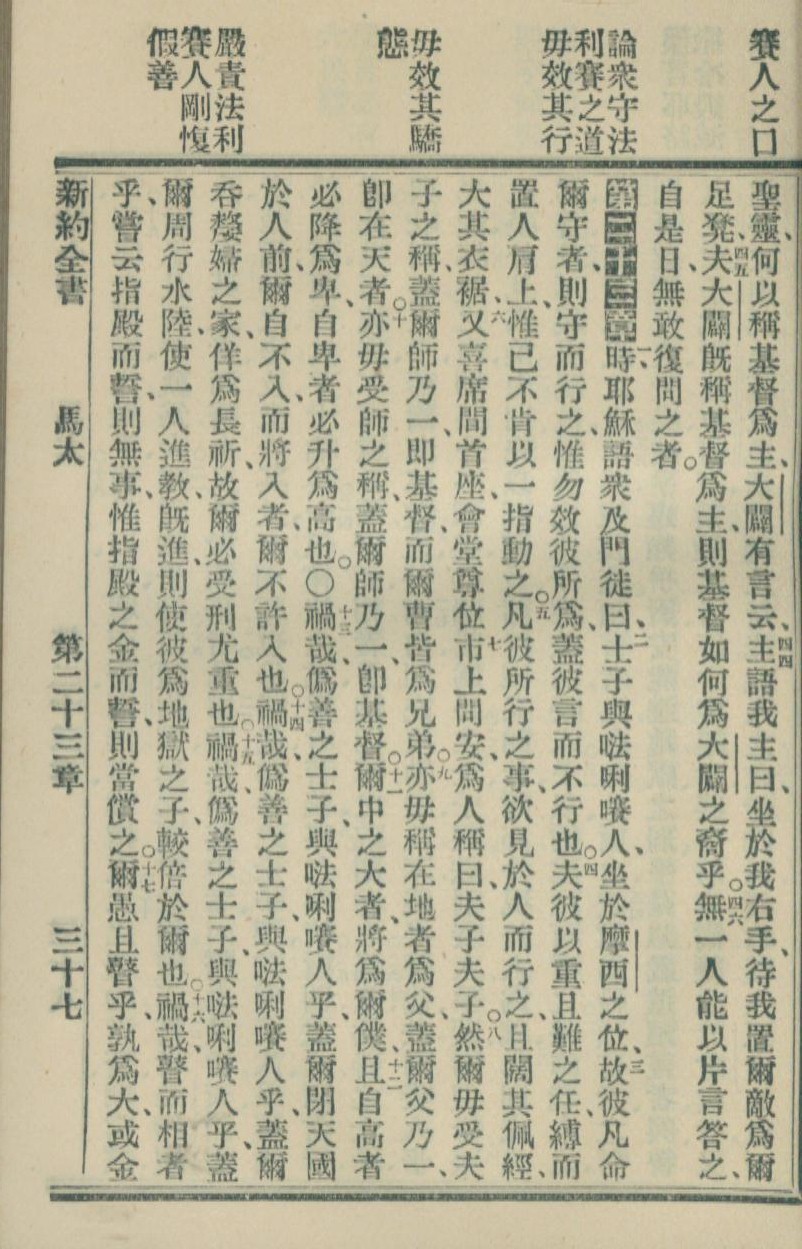 賽人之口
論衆守法
利賽之道
毋效其行
毋效其驕
態
嚴責法利
賽人剛愎
假善
聖靈、何以稱基督爲主、大闢有言云、四四主語我主曰、坐於我右手、待我置爾敵爲爾
足凳、四五夫大闢旣稱基督爲主、則基督如何爲大闢之裔乎。四六無一人能以片言答之、
自是日、無敢復問之者。
第二十三章一時、耶穌語衆及門徒曰、二士子與㳒唎㘔人、坐於摩西之位、三故彼凡命
爾守者、則守而行之、惟勿效彼所爲、蓋彼言而不行也。四夫彼以重且難之任、縛而
置人肩上、惟己不肯以一指動之。五凡彼所行之事、欲見於人而行之、且闊其佩經、
大其衣裾、六又喜席間首座、會堂尊位、七市上問安、爲人稱曰、夫子夫子。八然爾毋受夫
子之稱、蓋爾師乃一、即基督、而爾曹皆爲兄弟。九亦毋稱在地者爲父、蓋爾父乃一、
卽在天者。十亦毋受師之稱、蓋爾師乃一、卽基督。十一爾中之大者、將爲爾僕、十二且自高者
必降爲卑、自卑者必升爲高也。〇十三禍哉、僞善之士子、與㳒唎㘔人乎、蓋爾閉天國
於人前、爾自不入、而將入者、爾不許入也。十四禍哉、僞善之士子、與㳒唎㘔人乎、蓋爾
吞嫠婦之家、佯爲長祈、故爾必受刑尤重也。十五禍哉、僞善之士子、與㳒唎㘔人乎、蓋
爾周行水陸、使一人進教、旣進、則使彼爲地獄之子、較倍於爾也。十六禍哉、瞽而相者
乎、嘗云指殿而誓、則無事、惟指殿之金而誓、則當償之。十七爾愚且瞽乎、孰爲大、或金
新約全書　馬太　第二十三章　三十七